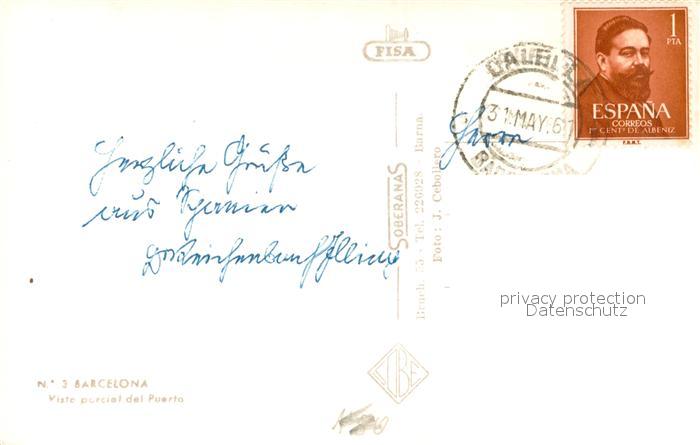 FISA
1
PTA
ESPAÑA
CORREOS
1er CENTº DE ALBENIZ
F.N.M.T.
31 MAY. 61
Herrn
Herzliche Grüße
aus Spanien
SOBERANAS
Bruch, 75 - Tel. 226028 - Barna.
Foto: J. Cebollero
privacy protection
Datenschutz
LIBE
N.º 3 BARCELONA
Vista parcial del Puerto